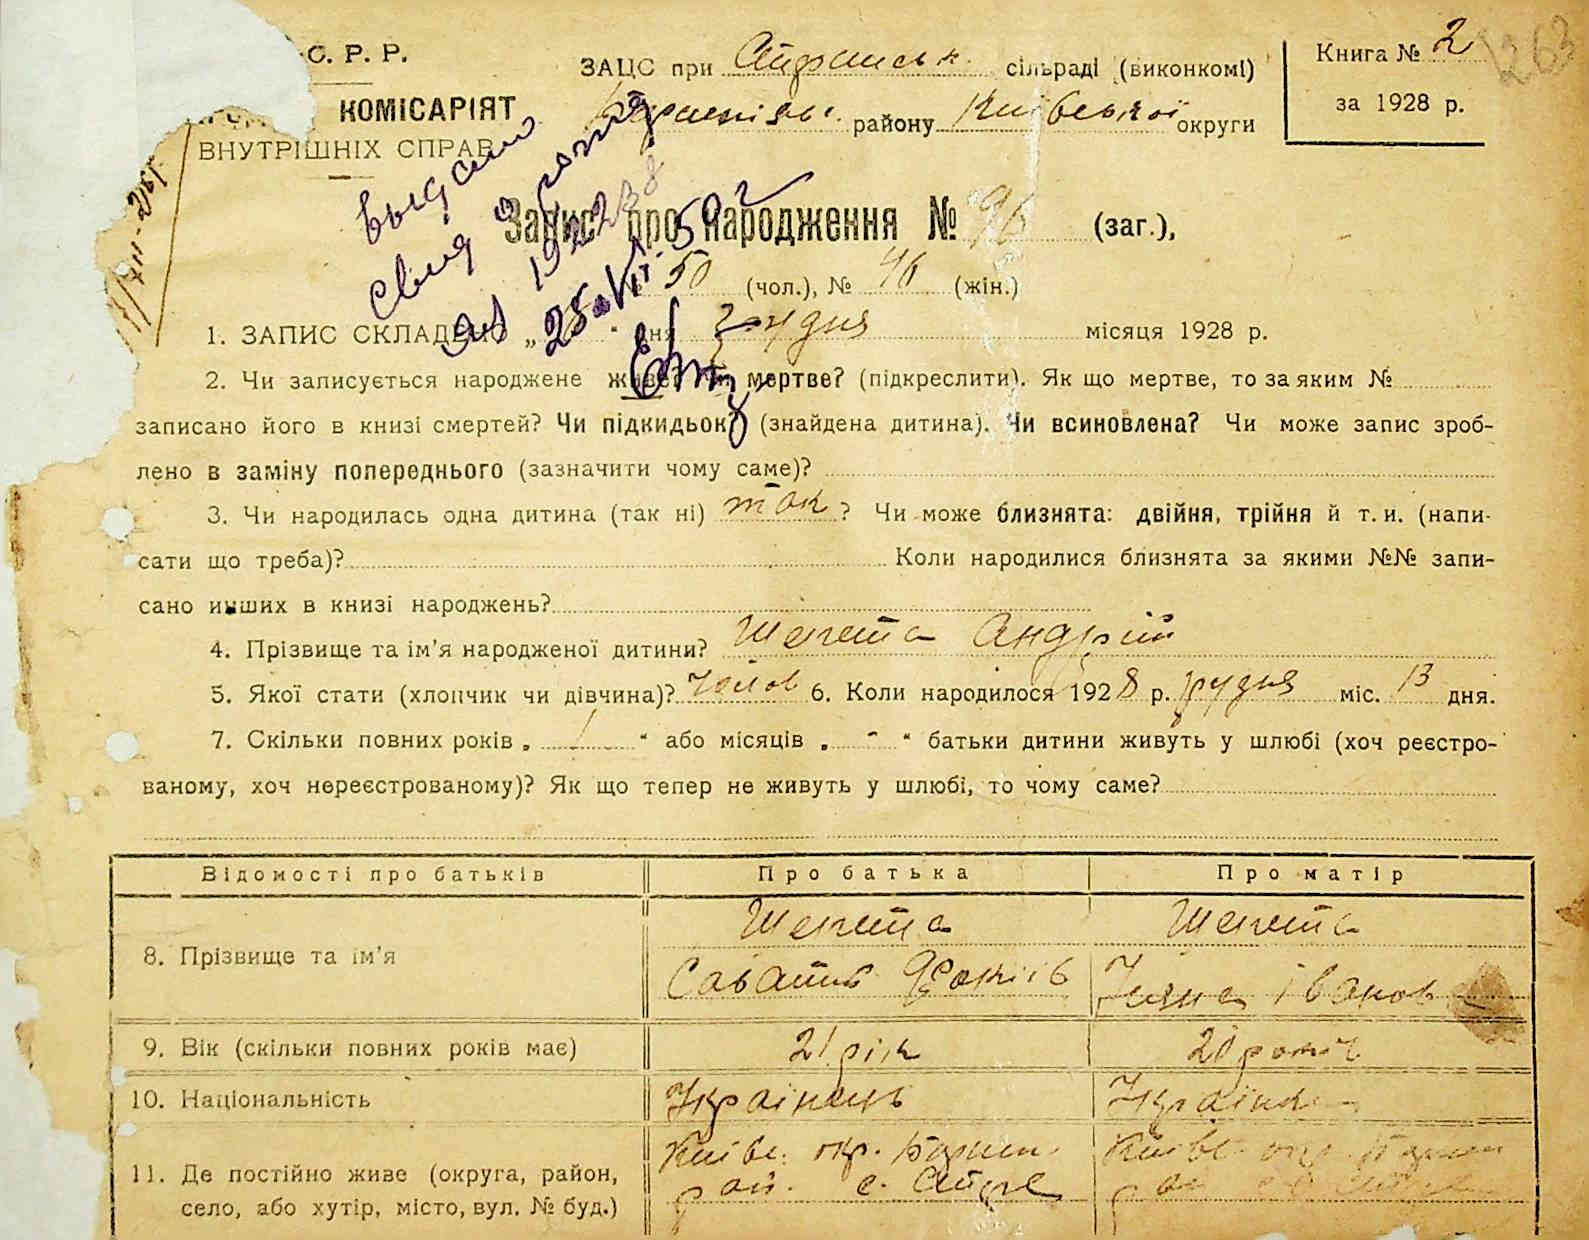 С. Р. Р.
КОМІСАРІЯТ
ВНУТРІШНІХ СПРАВ
ЗАЦС при сільраді (виконкомі)
району Київської округи
Книга № 2
за 1928 р.
263
выдано
свид
Запис про народження № 96 (заг.),
50 (чол.), № 46 (жін.)
1. ЗАПИС СКЛАДЕНО „ “ дня грудня місяця 1928 р.
2. Чи записується народжене живе? чи мертве? (підкреслити). Як що мертве, то за яким №
записано його в книзі смертей? Чи підкидьок? (знайдена дитина). Чи всиновлена? Чи може запис зроб-
лено в заміну попереднього (зазначити чому саме)?
3. Чи народилась одна дитина (так ні) так ? Чи може близнята: двійня, трійня й т. и. (напи-
сати що треба)? Коли народилися близнята за якими №№ запи-
сано инших в книзі народжень?
4. Прізвище та ім'я народженої дитини? Шепета Андрій
5. Якої стати (хлопчик чи дівчина)? чолов 6. Коли народилося 1928 р. грудня міс. 13 дня.
7. Скільки повних років „ 1 “ або місяців „ - “ батьки дитини живуть у шлюбі (хоч реєстро-
ваному, хоч нереєстрованому)? Як що тепер не живуть у шлюбі, то чому саме?
Відомості про батьків Про батька Про матір
8. Прізвище та ім'я
Шепета Шепета
Іванов
9. Вік (скільки повних років має) 21 рік 20 років
10. Національність Українець Українка
11. Де постійно живе (округа, район,
село, або хутір, місто, вул. № буд.)
Київс. окр. Бориш. Київс. окр. Бориш
рай. с. рай с.